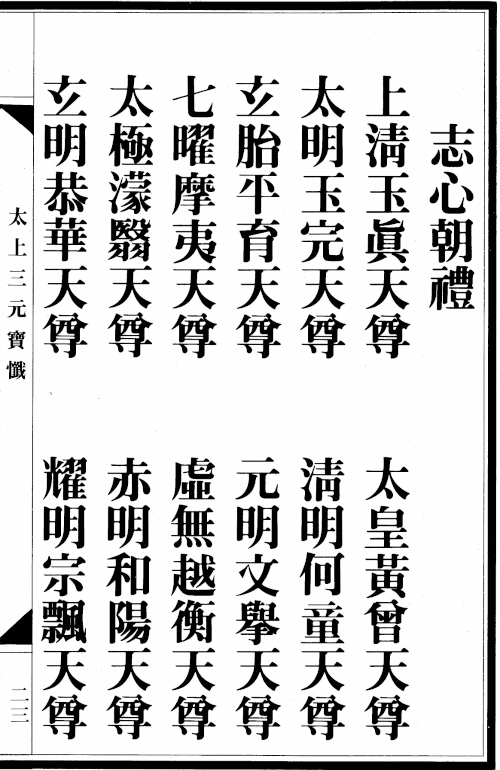 志心朝禮
上清玉眞天尊　太皇黃曾天尊
太明玉完天尊　清明何童天尊
玄胎平育天尊　元明文擧天尊
七曜摩夷天尊　虛無越衡天尊
太極濛翳天尊　赤明和陽天尊
玄明恭華天尊　耀明宗飄天尊
太上三元寶懺
二三